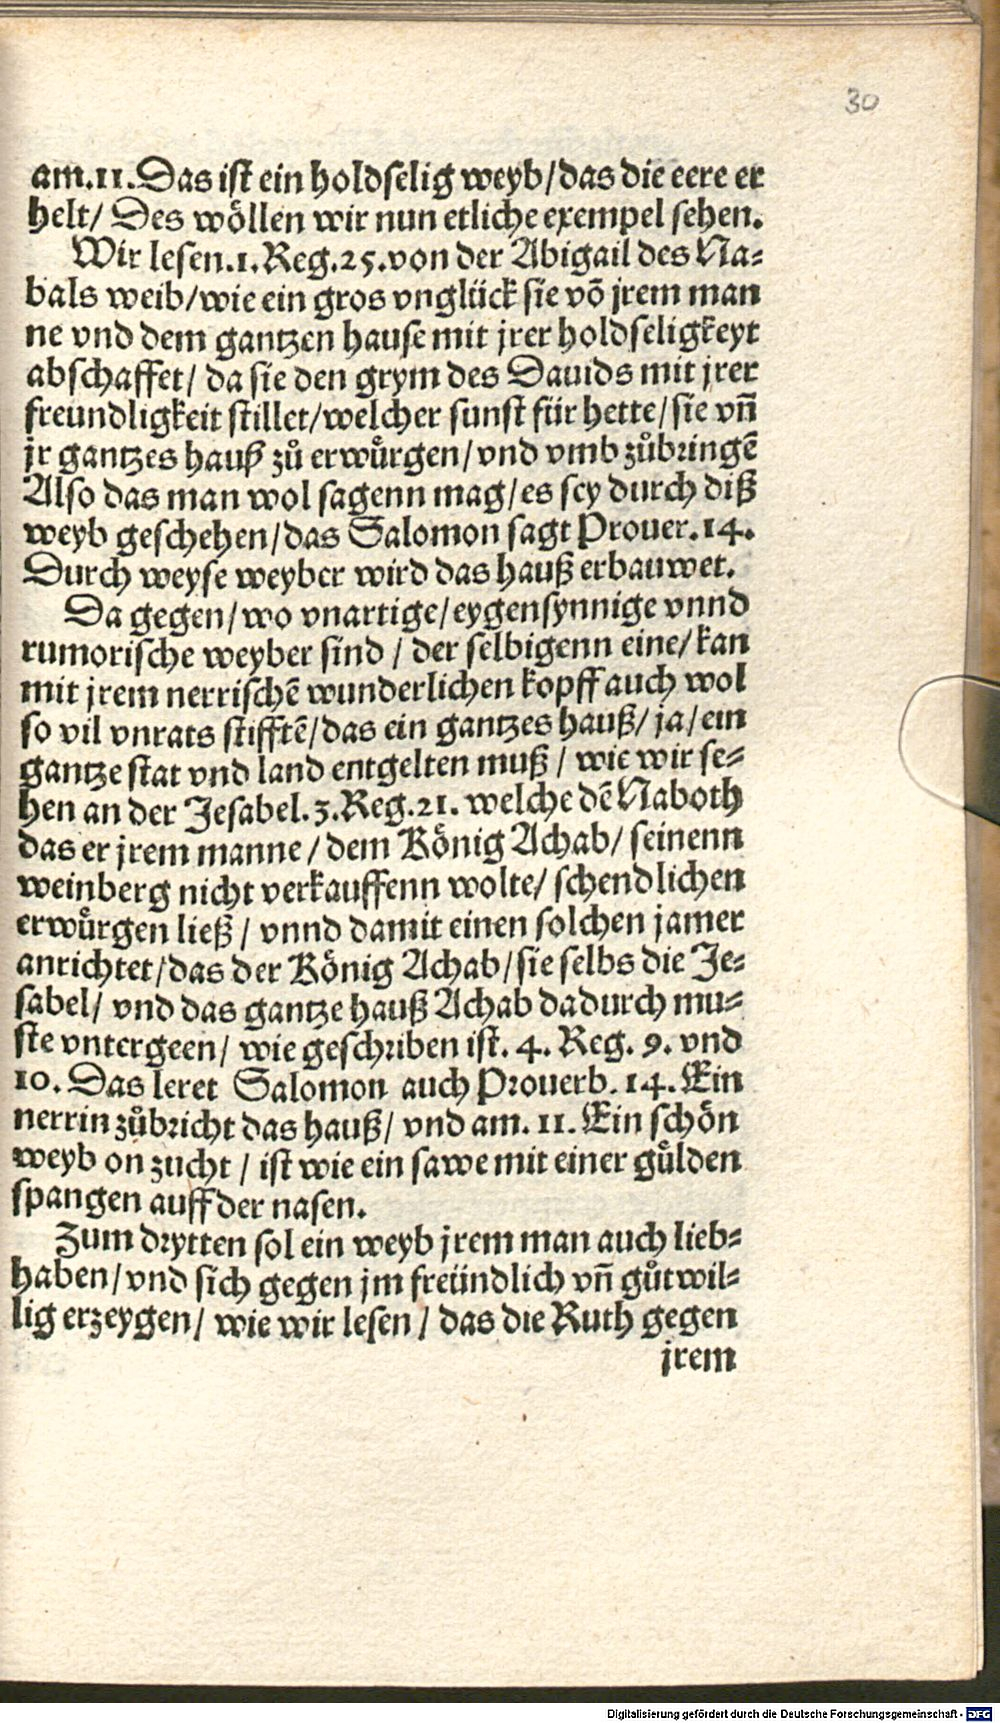 30
am.11.Das ist ein holdselig weyb/das die eere er
helt/ Des wöllen wir nun etliche exempel sehen.
Wir lesen.1.Reg.25.von der Abigail des Na-
bals weib/wie ein gros vnglück sie võ jrem man
ne vnd dem gantzen hause mit jrer holdseligkeyt
abschaffet/ da sie den grym des Dauids mit jrer
freundligkeit stillet/welcher sunst für hette/sie vñ
jr gantzes hauß zů erwůrgen/vnd vmb zůbringẽ
Also das man wol sagenn mag/es sey durch diß
weyb geschehen/das Salomon sagt Prouer.14.
Durch weyse weyber wird das hauß erbauwet.
Da gegen/wo vnartige/eygensynnige vnnd
rumorische weyber sind / der selbigenn eine/kan
mit jrem nerrischẽ wunderlichen kopff auch wol
so vil vnrats stifftẽ/das ein gantzes hauß/ja/ein
gantze stat vnd land entgelten muß / wie wir se-
hen an der Jesabel.3.Reg.21. welche dẽ Naboth
das er jrem manne/dem König Achab/ seinenn
weinberg nicht verkauffenn wolte/ schendlichen
erwůrgen ließ / vnnd damit einen solchen jamer
anrichtet/das der König Achab/sie selbs die Je-
sabel/ vnd das gantze hauß Achab dadurch mu-
ste vntergeen/ wie geschriben ist. 4. Reg. 9. vnd
10. Das leret Salomon auch Prouerb. 14. Ein
nerrin zůbricht das hauß/ vnd am. 11. Ein schön
weyb on zucht / ist wie ein sawe mit einer gůlden
spangen auff der nasen.
Zum drytten sol ein weyb jrem man auch lieb-
haben/vnd sich gegen jm freündlich vñ gůtwil-
lig erzeygen/ wie wir lesen / das die Ruth gegen
jrem
Digitalisierung gefördert durch die Deutsche Forschungsgemeinschaft - DFG